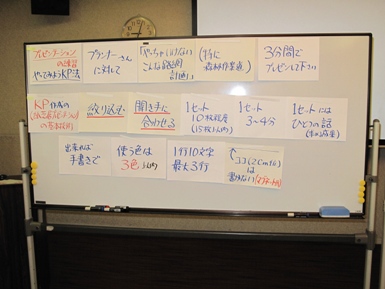 プレゼンテーション
の練習
やってみようKP法
プランナーさん
に対して
「やっちゃいけない
こんな路網
計画」
(特に
森林作業道)
3分間で
プレゼンして下さい
KP作成の
(紙芝居プレゼンテーション)
の基本技術
絞り込む
聞き手に
合わせる
1セット
10枚程度
(15枚以内)
1セット
3〜4分
1セットには
ひとつの話
出来れば
手書きで
使う色は
3色以内
1行10文字
最大3行
↑ココ(2cm位)
は
書かない